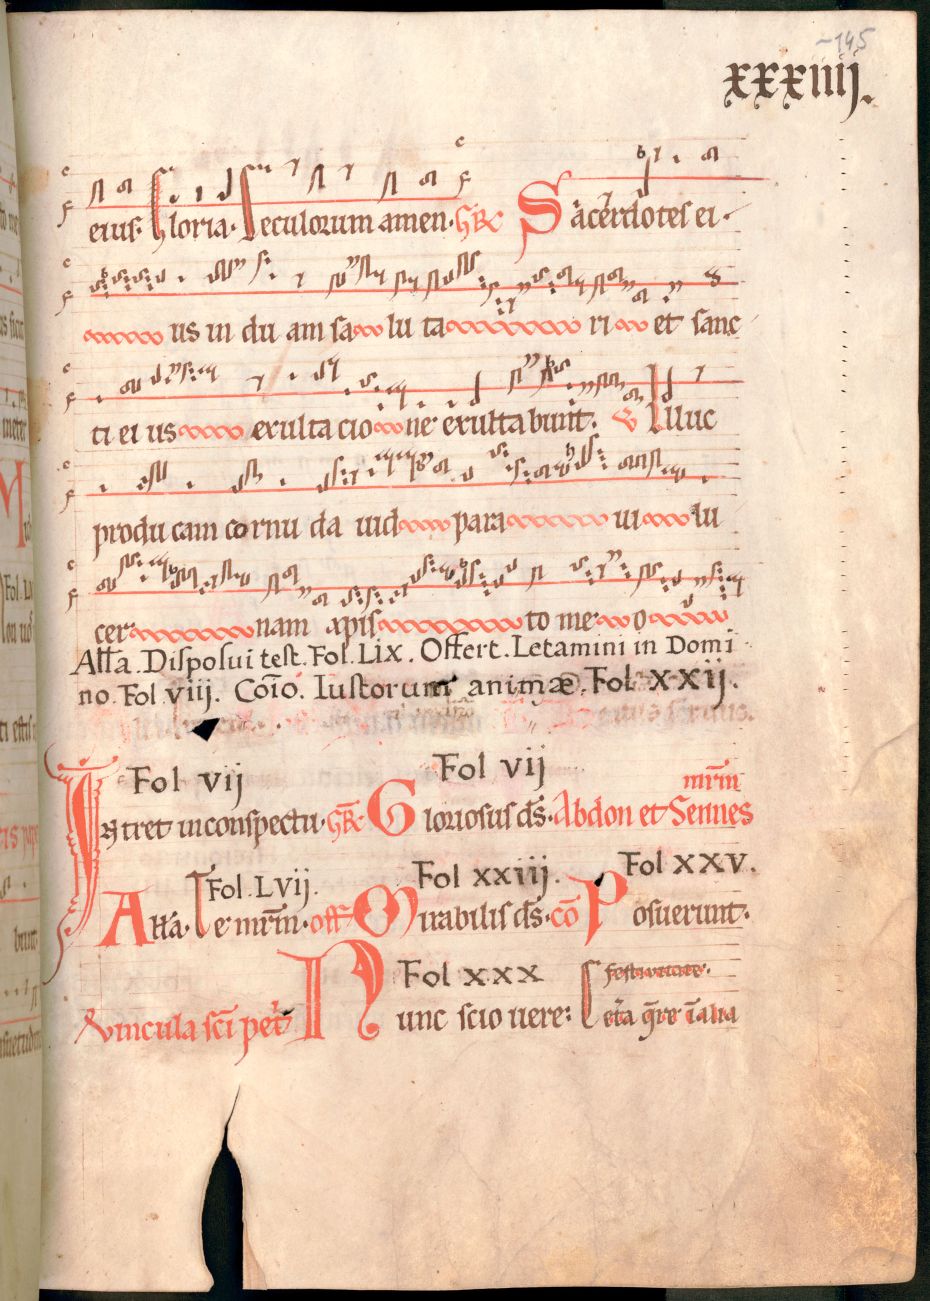 -145
xxxiiij.
eius. Gloria. Seculorum amen. GR Sacerdotes ei
us in du am sa lu ta ri et sanc
ti ei us exulta cio ne exulta bunt. V Illuc
produ cam cornu da uid para ui lu
cer nam xpis to me o
Alla. Disposui test. Fol. Lix. Offert. Letamini in Domi
no. Fol viij. Coio. Iustorum animæ. Fol xxij.
Fol vij Fol vij mrm
Intret inconspectu. GR Gloriosus ds. Abdon et Sennes
Fol. Lvij. Fol xxiij. Fol xxv.
Alla. Te mrm. off Mirabilis ds. co Posuerunt.
Fol xxx
Advincula sci petri Nunc scio uere: cetera